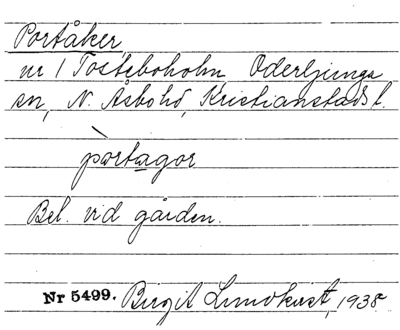 Portåker
nr 1 Tosteboholm, Oderljunga
sn, N. Åsbohd, Kristianstads l.
pòrtagor
Bel. vid gården.
Nr 5499. Birgit Lundkvist, 1938